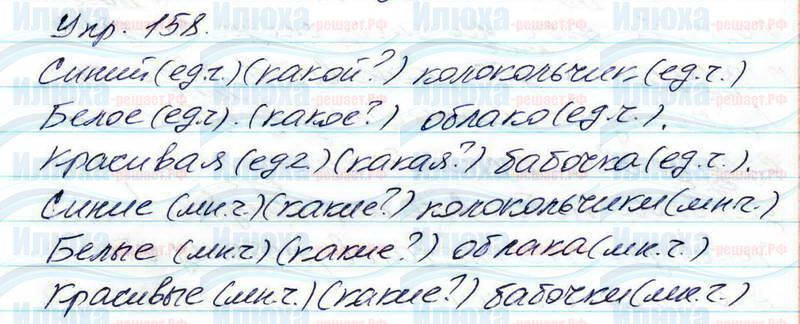 Упр. 158.
Синий (ед.ч.) (какой?) колокольчик (ед.ч.)
Белое (ед.ч). (какое?) облако (ед.ч.).
Красивая (ед.ч) (какая?) бабочка (ед.ч.).
Синие (мн.ч.) (какие?) колокольчики (мн.ч.)
Белые (мн.ч) (какие?) облака (мн.ч.)
Красивые (мн.ч.) (какие?) бабочки (мн.ч.)
Илюха-решает.РФ